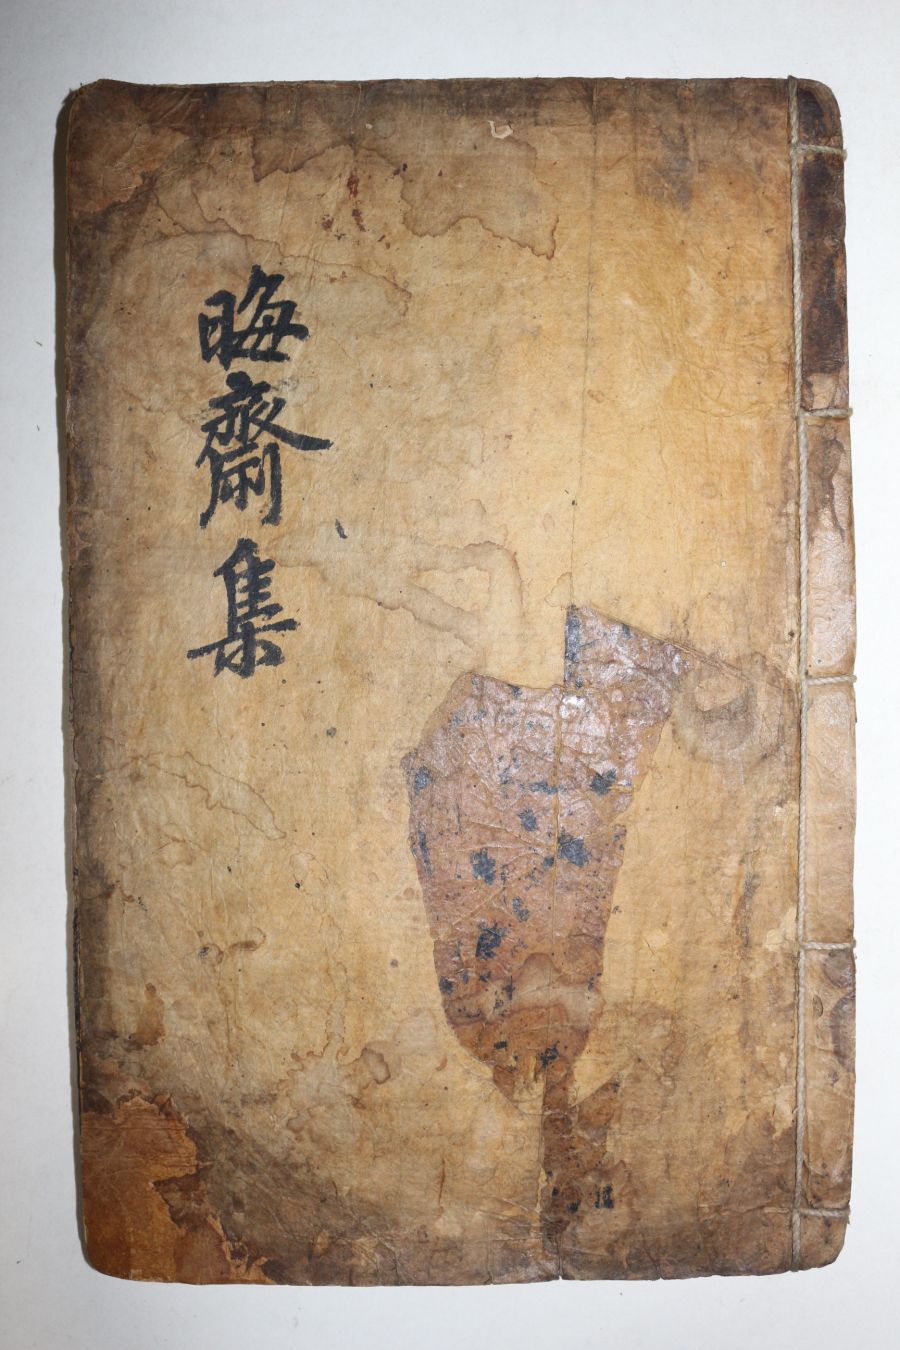 晦齋集